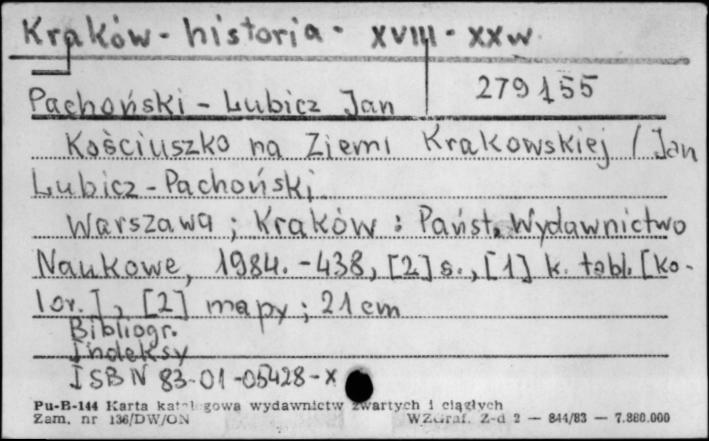 Kraków - historia - XVIII - XX w.
279155
Pachoński - Lubicz Jan
Kościuszko na Ziemi Krakowskiej / Jan
Lubicz - Pachoński.
Warszawa ; Kraków : Państ. Wydawnictwo
Naukowe, 1984. - 438, [2] s., [1] k. tabl. [ko-
lor.], [2] mapy ; 21 cm
Bibliogr.
Indeksy
ISBN 83-01-05428-X
Pu-B-144 Karta katalogowa wydawnictw zwartych i ciągłych
Zam. nr 136/DW/ON WZGraf. Z-d 2 — 844/83 — 7.880.000